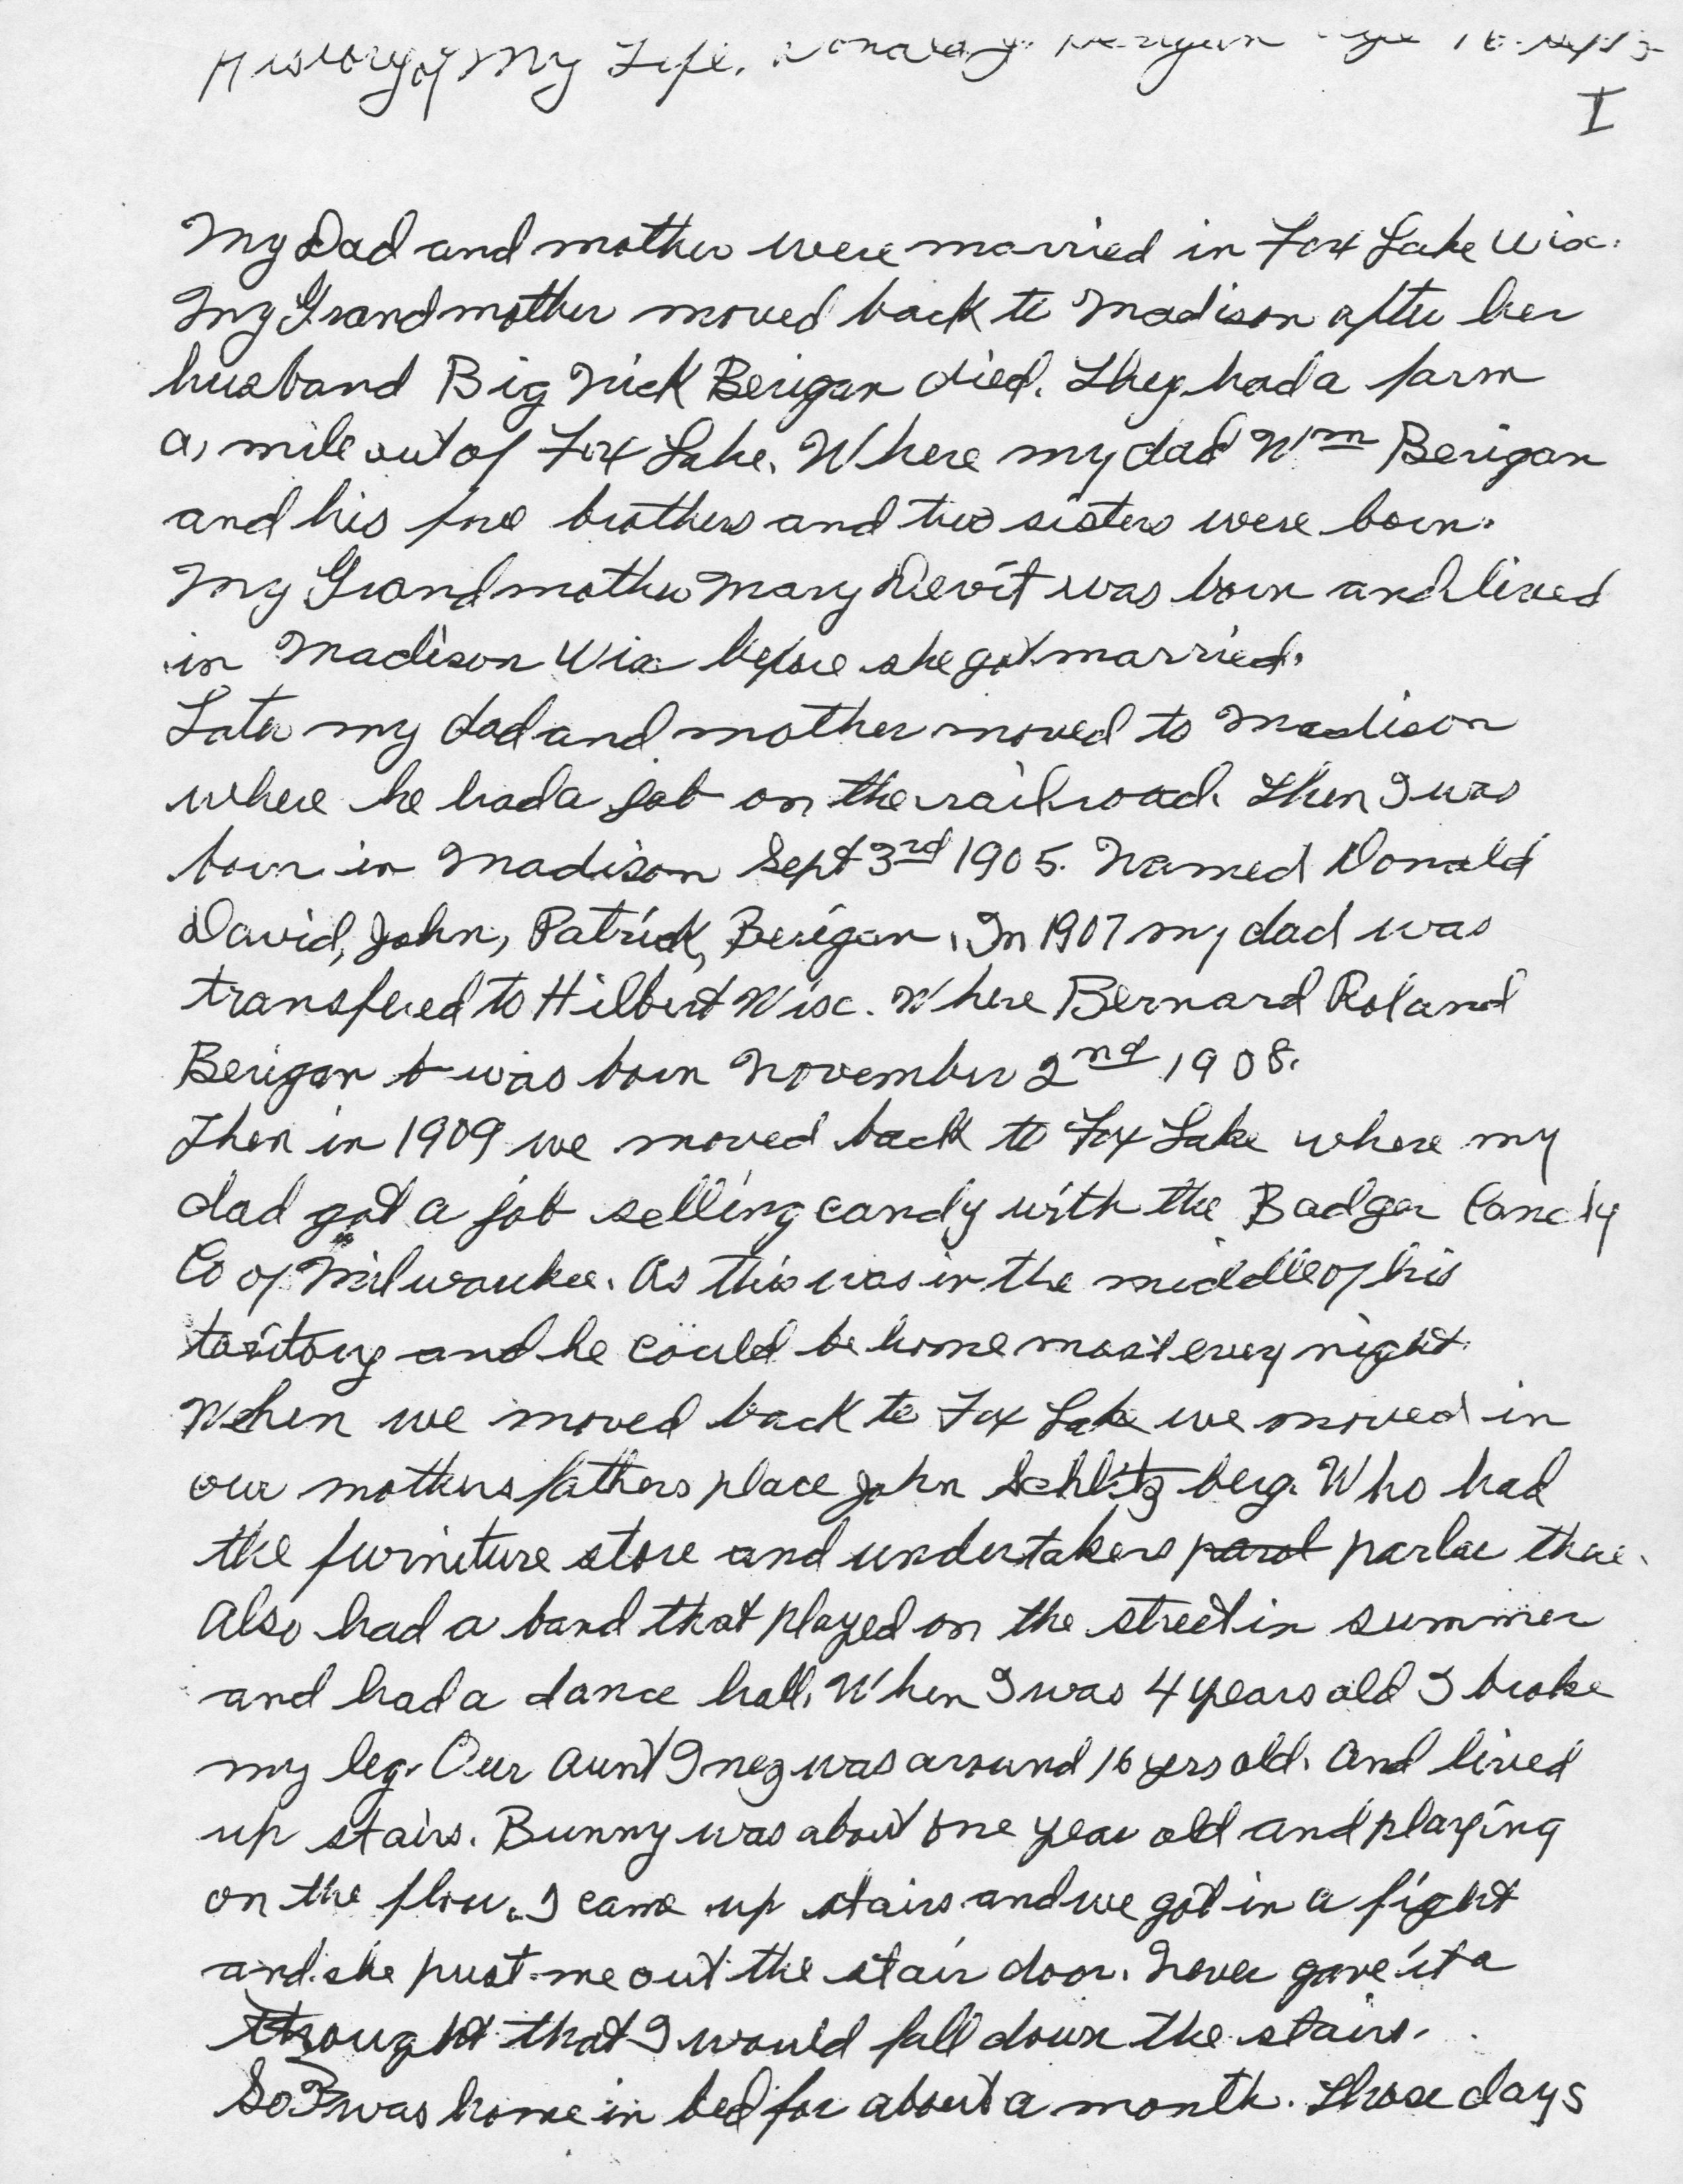 History of My Life. Donald J. Berigan age
I
My Dad and mother were married in Fox Lake Wisc.
My Grandmother moved back to Madison after her
husband Big Nick Berigan died. They had a farm
a, mile out of Fox Lake. Where my dad Wm Berigan
and his five brothers and two sisters were born.
My Grandmother Mary Devit was born and lived
in Madison Wisc before she got married.
Later my dad and mother moved to Madison
where he had a job on the railroad. Then I was
born in Madison Sept 3rd 1905. Named Donald
David, John, Patrick, Berigan. In 1907 my dad was
transfered to Hilbert Wisc. Where Bernard Roland
Berigan b was born November 2nd 1908.
Then in 1909 we moved back to Fox Lake where my
dad got a job selling candy with the Badger Candy
Co of Milwaukee. As this was in the middle of his
taritory and he could be home most every night.
When we moved back to Fox Lake we moved in
our mothers fathers place John Schlitzberg. Who had
the furniture store and undertakers parol parlar thae.
Also had a band that played on the street in summer
and had a dance hall. When I was 4 years old I broke
my leg. Our Aunt Inez was around 16 yrs old. And lived
up stairs. Bunny was about one year old and playing
on the floor. I came up stairs and we got in a fight
and she pust me out the stair door. Never gave it a
thought that I would fall down the stairs.
So I was home in bed for about a month. Those days